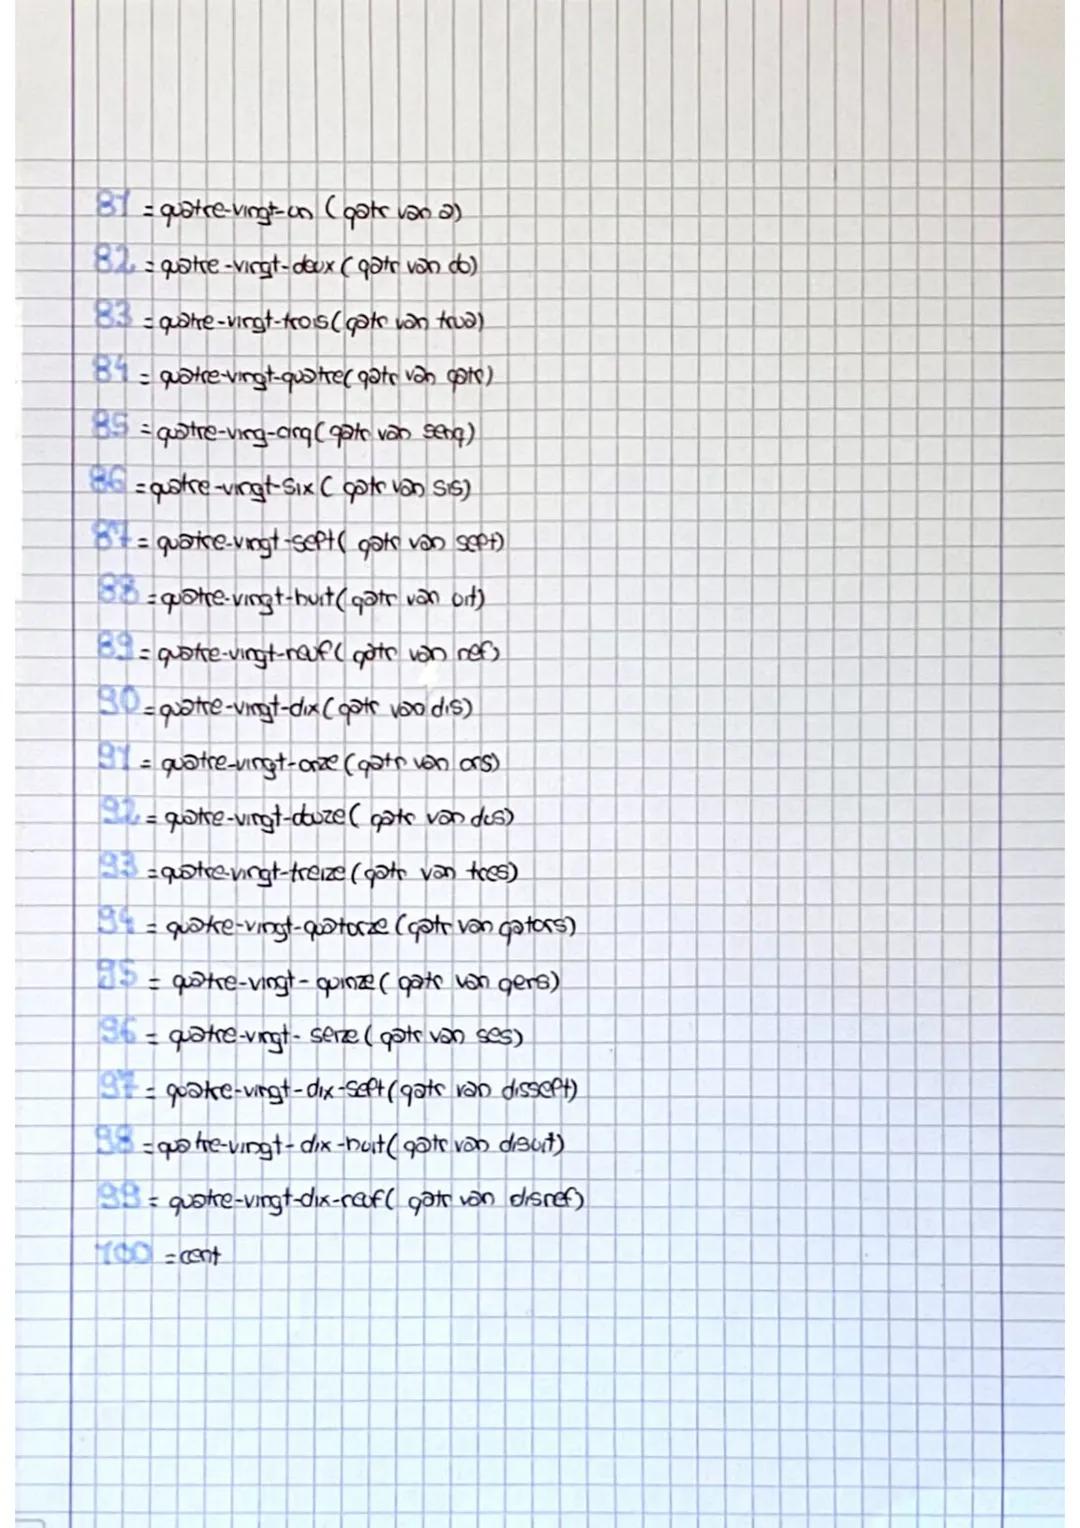 81 = quatre-vingt-un (qatr van a)
82 = quatre-vingt-deux (qatr van do)
83 = quatre-vingt-trois (qatr van trua)
84 = quatre-vingt-quatre (qatr van qatr)
85 = quatre-ving-cinq (qatr van senq)
86 = quatre-vingt-six (qatr van sis)
87 = quatre-vingt-sept (qatr van sept)
88 = quatre-vingt-huit (qatr van uit)
89 = quatre-vingt-neuf (qatr van nef)
90 = quatre-vingt-dix (qatr van dis)
91 = quatre-vingt-onze (qatr van ons)
92 = quatre-vingt-douze (qatr van dus)
93 = quatre-vingt-treize (qatr van tres)
94 = quatre-vingt-quatorze (qatr van qators)
95 = quatre-vingt-quinze (qatr van qens)
96 = quatre-vingt-seize (qatr van ses)
97 = quatre-vingt-dix-sept (qatr van dissept)
98 = quatre-vingt-dix-huit (qatr van disuit)
99 = quatre-vingt-dix-neuf (qatr van disnef)
100 = cent